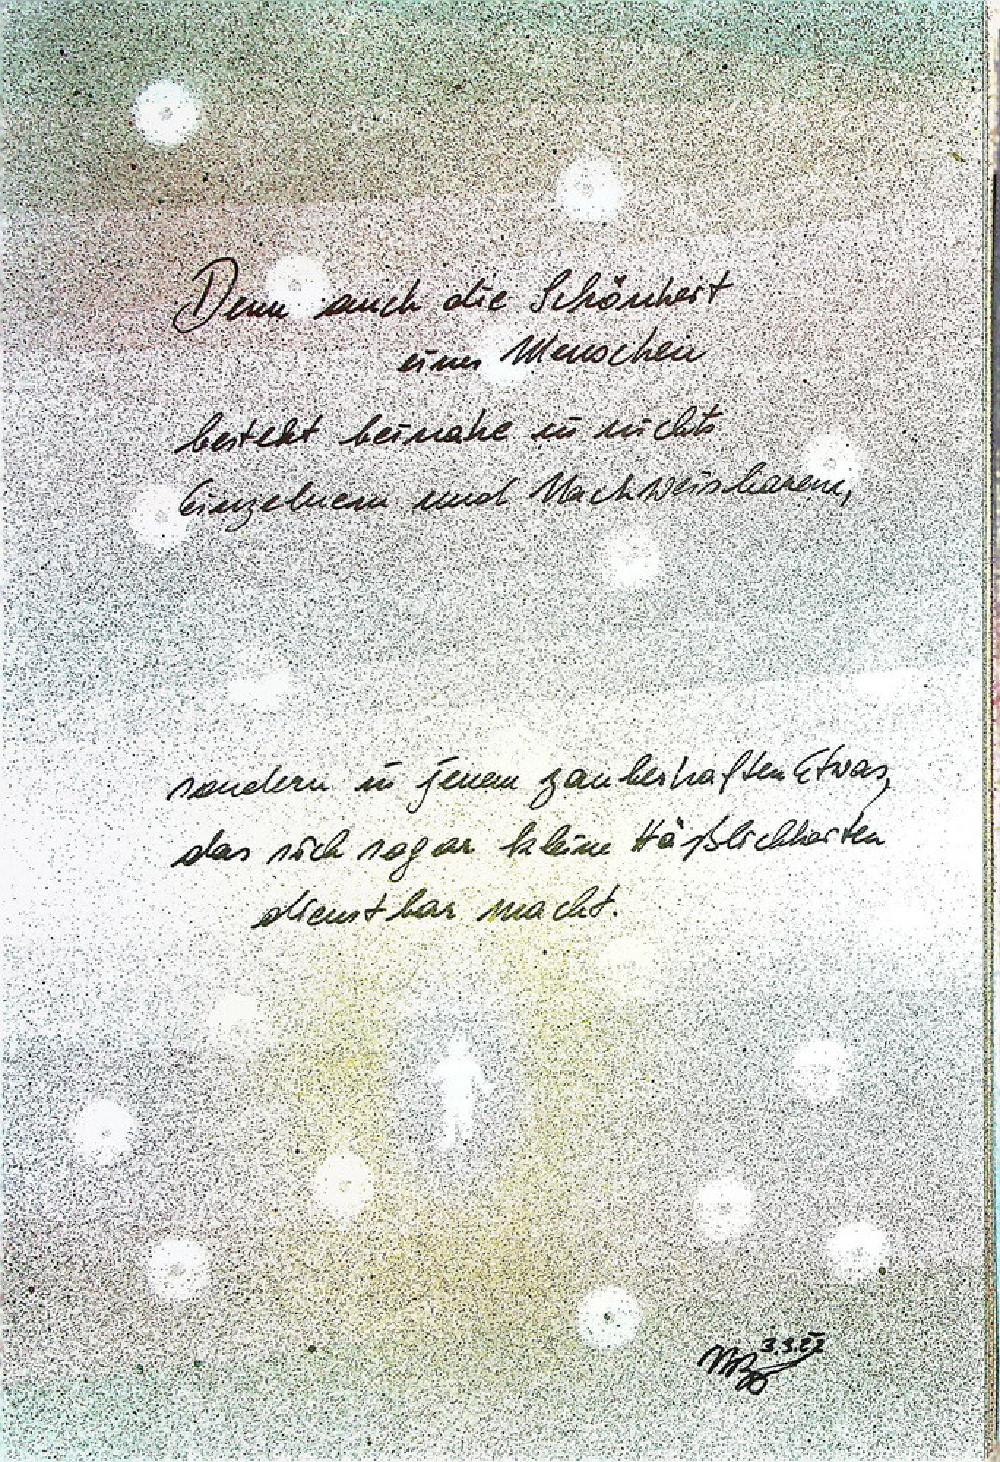 Denn auch die Schönheit
eines Menschen
besteht beinahe in nichts
Einzelnem und Nachweisbarem,
sondern in jenem zauberhaften Etwas,
das sich sogar kleine Häßlichkeiten
dienstbar macht.